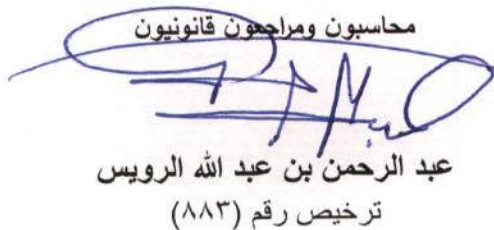 محاسبون ومراجعون قانونيون
عبد الرحمن بن عبد الله الرويس
ترخيص رقم (٨٨٣)